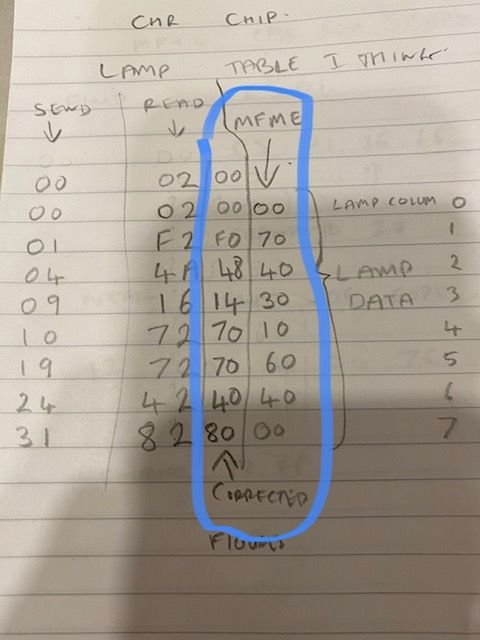 CHR CHIP.
LAMP TABLE I THINK.
SEND READ MFME
00 02 00
00 02 00 00 LAMP COLUM 0
01 F2 F0 70 1
04 4A 48 40 LAMP 2
09 16 14 30 DATA 3
10 72 70 10 4
19 72 70 60 5
24 42 40 40 6
31 82 80 00 7
CORRECTED
FIGURES